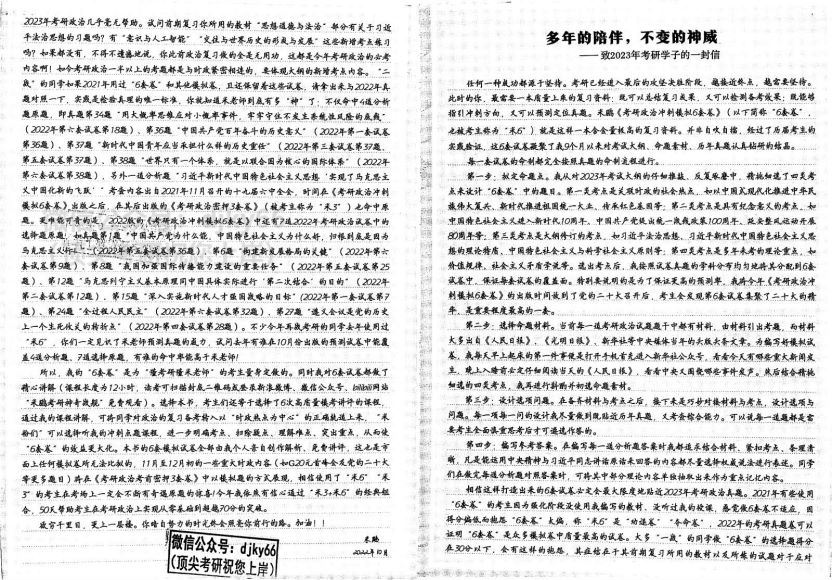 2023年考研政治几乎毫无帮助。试问前期复习你所用的教材“思想道德与法治”部分有关于习近
平法治思想的习题吗？有“意识与人工智能”“交往与世界历史的形成与发展”这些新增考点练习
吗？如果都没有，不得不遗憾地说，你此前政治复习做的全是无用功，这都是今年考研政治的必考
内容啊！如今考研政治一半以上的考题都是与时政紧密相连的，要体现大纲的新增考点内容。“二
战”的同学如果2021年用过“6套卷”和其他模拟卷，且还保留着这些卷子，请拿出来与2022年真
题对照一下，实践是检验真理的唯一标准，你就知道米老师到底有多“神”了：不仅命中4道分析
题原题，即真题第34题“用大概率思维应对小概率事件，牢牢守住不发生系统性风险的底线”
（2022年第六套试卷第18题）、第36题“中国共产党百年奋斗的历史意义”（2022年第一套试卷
第36题）、第37题“新时代中国青年应当承担什么样的历史责任”（2022年第三套试卷第37题、
第五套试卷第37题）、第38题“世界只有一个体系，就是以联合国为核心的国际体系”（2022年
第六套试卷第38题），另外一道分析题“习近平新时代中国特色社会主义思想‘实现了马克思主
义中国化新的飞跃’”考查内容出自2021年11月召开的十九届六中全会，时间在《考研政治冲刺
模拟6套卷》出版之后，在其后出版的《考研政治密押3套卷》（被考生称为“米3”）也命中原
题。更难能可贵的是，2022版的《考研政治冲刺模拟6套卷》中还有7道2022年考研政治试卷中的
选择题原题，如真题第1题“中国共产党为什么能，中国特色社会主义为什么好，归根到底是因为
马克思主义行”（2022年第五套试卷第36题）、第6题“构建新发展格局的关键”（2022年第六
套试卷第9题）、第8题“我国加强国际传播能力建设的重要任务”（2022年第五套试卷第25
题）、第12题“马克思列宁主义基本原理同中国具体实际进行‘第二次结合’的目的”（2022年
第二套试卷第12题）、第15题“深入实施新时代人才强国战略的目标”（2022年第一套试卷第7
题）、第24题“全过程人民民主”（2022年第六套试卷第32题）、第27题“遵义会议是党的历史
上一个生死攸关的转折点”（2022年第四套试卷第28题）。不少今年再战考研的同学去年使用过
“米6”，你们一定见识了米老师预测真题的威力，试问去年有谁在10月份出版的预测试卷中能覆
盖4道分析题、7道选择原题，有谁的命中率能高于米老师！
所以，我的“6套卷”是为“懂考研懂米老师”的考生量身定做的。同时我对6套试卷都做了
精心讲解（课程长度为12小时，读者可扫描封底二维码或登录新东方微博、微信公众号、bilibili网站
“米鹏考研神奇战舰”免费观看）。选择米书，考生们还等于选择了6次高质量模考讲评的课程，
通过我的课程讲解，可将同学对政治的复习备考转入以“时政热点为中心”的正确轨道上来，“米
粉们”可以选择听我的冲刺点题课程，进一步明确考点、扫除疑点、理解难点、突出重点，从而使
“6套卷”的效益更大化。本书的6套模拟试卷全部由我个人亲自创作解析，免费讲评，这必是市
面上任何模拟卷所无法比拟的，11月至12月初的一些重大时政内容（如G20元首峰会及党的二十大
等更多题目）将在《考研政治考前密押3套卷》中以模拟题的方式展现，相信使用了“米6”“米
3”的考生在考场上一定会不断有看遍原题的惊喜！今年我依然有信心通过“米3+米6”的经典组
合，50天帮助考生在考研政治上实现从零基础到超越70分的突破。
欲穷千里目，更上一层楼。你暗自努力的时光终会照亮你前行的路。加油！！
米鹏
2022年10月
微信公众号: djky66
(顶尖考研祝您上岸)
多年的陪伴，不变的神威
——致2023年考研学子的一封信
任何一种成功都源于坚持。考研已经进入最后的攻坚决胜阶段，越接近终点，越需要坚持。
此时的你，最需要一本质量上乘的复习资料：既可以总结复习成果，又可以检测备考效果；既能够
指引冲刺方向，又可以预测定位真题。米鹏《考研政治冲刺模拟6套卷》（以下简称“6套卷”，
也被考生称为“米6”）就是这样一本含金量很高的复习资料。并非自吹自擂，经过了历届考生的
实践验证，这6套试卷凝聚了我9个月以来对考试大纲、命题素材、历年真题认真钻研的结晶。
每一套试卷的命制都完全按照真题的命制流程进行。
第一步：拟定命题点。我从对2023年考试大纲的仔细推敲、反复琢磨中，精挑细选了四类考
点来设计“6套卷”中的题目。第一类考点是反映时政的社会热点，如以中国式现代化推进中华民
族伟大复兴、新时代推进祖国统一大业、传承红色基因等；第二类考点是具有纪念意义的考点，如
中国特色社会主义进入新时代10周年、中国共产党提出统一战线政策100周年、延安整风运动开展
80周年等；第三类考点是大纲修订的考点，如习近平法治思想、习近平新时代中国特色社会主义思
想的理论特质、中国特色社会主义与科学社会主义原则等；第四类考点是多年未考的理论重点，如
价值规律、社会主义矛盾学说等。选出考点后，我按照试卷真题的学科分布均匀地将其分配到6套
试卷中，保证每套试卷的覆盖面。特别要说明的是为了保证更高的预测率，我将今年《考研政治冲
刺模拟6套卷》的出版时间放到了党的二十大召开后，考生会发现第6套试卷集聚了二十大的精
华，是重要程度最高的一套。
第二步：选择命题材料。当前每一道考研政治试题题干中都有材料，由材料引出考题，而材料
大多出自《人民日报》、《光明日报》、新华社等中央媒体当年的大版大条文章。为编写好模拟试
卷，我每天早上起来的第一件事便是打开手机首先进入新华社公众号，看看今天有哪些重大新闻发
生，晚上入睡前必定仔细阅读当天的《人民日报》，看看中央又围绕哪些事件发声。然后结合精挑
细选的四类考点，我再进行新的斧切选命题素材。
第三步：设计选项问题。在备齐材料与考点之后，接下来是巧妙对接材料与考点，设计选项与
问题。每一项每一问的设计我尽量做到既贴近历年真题，又考查综合能力。可以说每一道题都是需
要考生全面慎重思考后才可遴选作答的。
第四步：编写参考答案。在编写每一道分析题答案时我都追求结合材料、紧扣考点、条理清
晰，凡是能运用中央精神与习近平同志讲话原话来回答的内容都尽量选择权威说法进行表述。同学
们在做完每道分析题对照答案时，可将其中部分理论内容单独抽取出来作为重点记忆内容。
相信这样打造出来的6套试卷必定会最大限度地贴近2023年考研政治真题。2021年有些使用
“6套卷”的考生因为强化阶段没使用我编写的教材，没听过我的授课，感觉做6套卷不适应，因
得分偏低而抱怨“6套卷”太偏，称“米6”是“劝退卷”“夺命卷”，2022年的考研真题卷可以
证明“6套卷”是众多模拟卷中质量最高的试卷。大多“一战”的同学做“6套卷”的选择题得分
在30分以下，会有这样的抱怨，其症结在于其前期复习所用的教材以及所练的试题对于应对